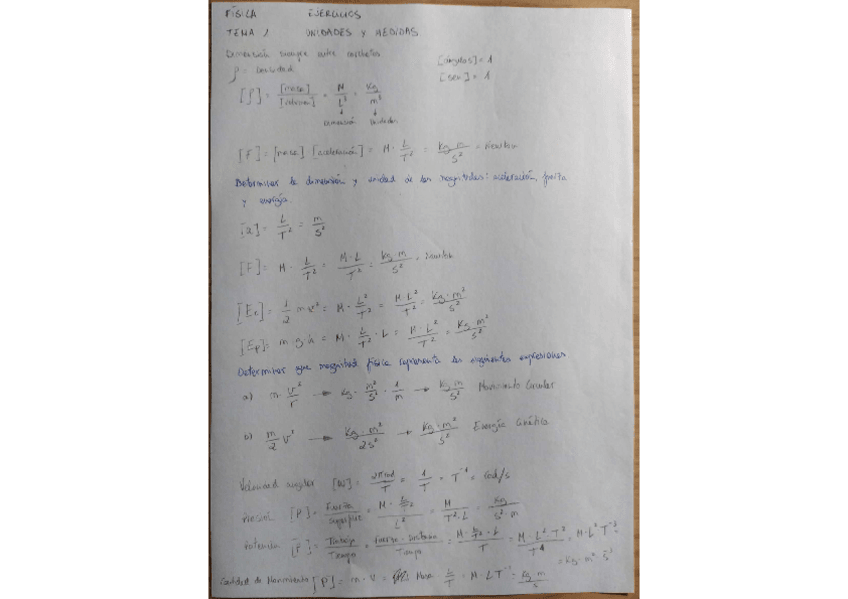 FÍSICA EJERCICIOS
TEMA 1 UNIDADES Y MEDIDAS
Dimensión siempre entre corchetes
ρ = densidad [ángulos] = 1
[sen] = 1
[ρ] = [masa] / [volumen] = M / L³ = Kg / m³
Dimensión Unidades
[F] = [masa] [aceleración] = M · L / T² = Kg · m / s² = Newton
Determinar la dimensión y unidad de las magnitudes: aceleración, fuerza
y energía.
[a] = L / T² = m / s²
[F] = M · L / T² = M · L / T² = Kg · m / s² = Newton
[Ec] = 1/2 m v² = M · L² / T² = M · L² / T² = Kg · m² / s²
[Ep] = m · g · h = M · L / T² · L = M · L² / T² = Kg · m² / s²
Determinar que magnitud física representa las siguientes expresiones
a) m · v² / r → Kg · m² / s² · 1 / m → Kg · m / s² Movimiento Circular
b) m / 2 v² → Kg · m² / 2s² → Kg · m² / s² Energía Cinética
Velocidad angular [W] = 2π rad / T = 1 / T = T⁻¹ = rad/s
Presión [P] = Fuerza / superficie = M · L / T² / L² = M / T² · L = Kg / s² · m
Potencia [P] = Trabajo / Tiempo = Fuerza · Distancia / Tiempo = M · L / T² · L / T = M · L² · T² / T = M · L² T⁻³ =
= Kg · m² · s⁻³
Cantidad de Movimiento [P] = m · v = Masa · L / T = M · L T⁻¹ = Kg · m / s